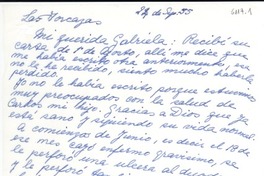 Las Torcazas
24 de Sep. 55
Mi querida Gabriela: Recibí su
carta de 1º de Agosto, allí me dice que
me había escrito otra anteriormente, esa
no la he recibido, siento mucho haberla
perdido.
No le había escrito porque estuvimos
muy preocupados con la salud de
Carlos mi hijo. Gracias a Dios que ya
está sano y siguiendo su vida normal.
A comienzos de Junio, es decir el 13 de
ese mes cayó enfermo gravísimo, se
le perforó una ulcera al duode